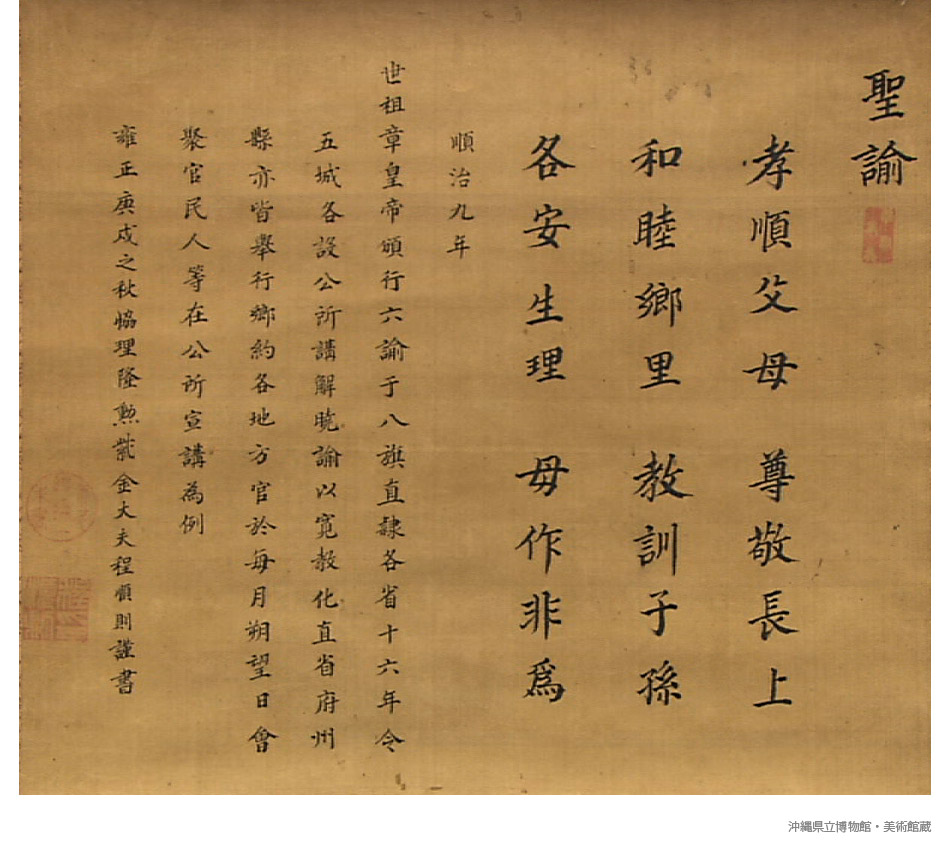 聖諭
孝順父母 尊敬長上
和睦鄉里 教訓子孫
各安生理 毋作非爲
順治九年
世祖章皇帝頒行六諭于八旗直隸各省十六年令
五城各設公所講解曉諭以寬教化直省府州
縣亦皆舉行鄉約各地方官於每月朔望日會
聚官民人等在公所宣講為例
雍正庚戌之秋恊理隆勲紫金大夫程順則謹書
沖縄県立博物館・美術館蔵